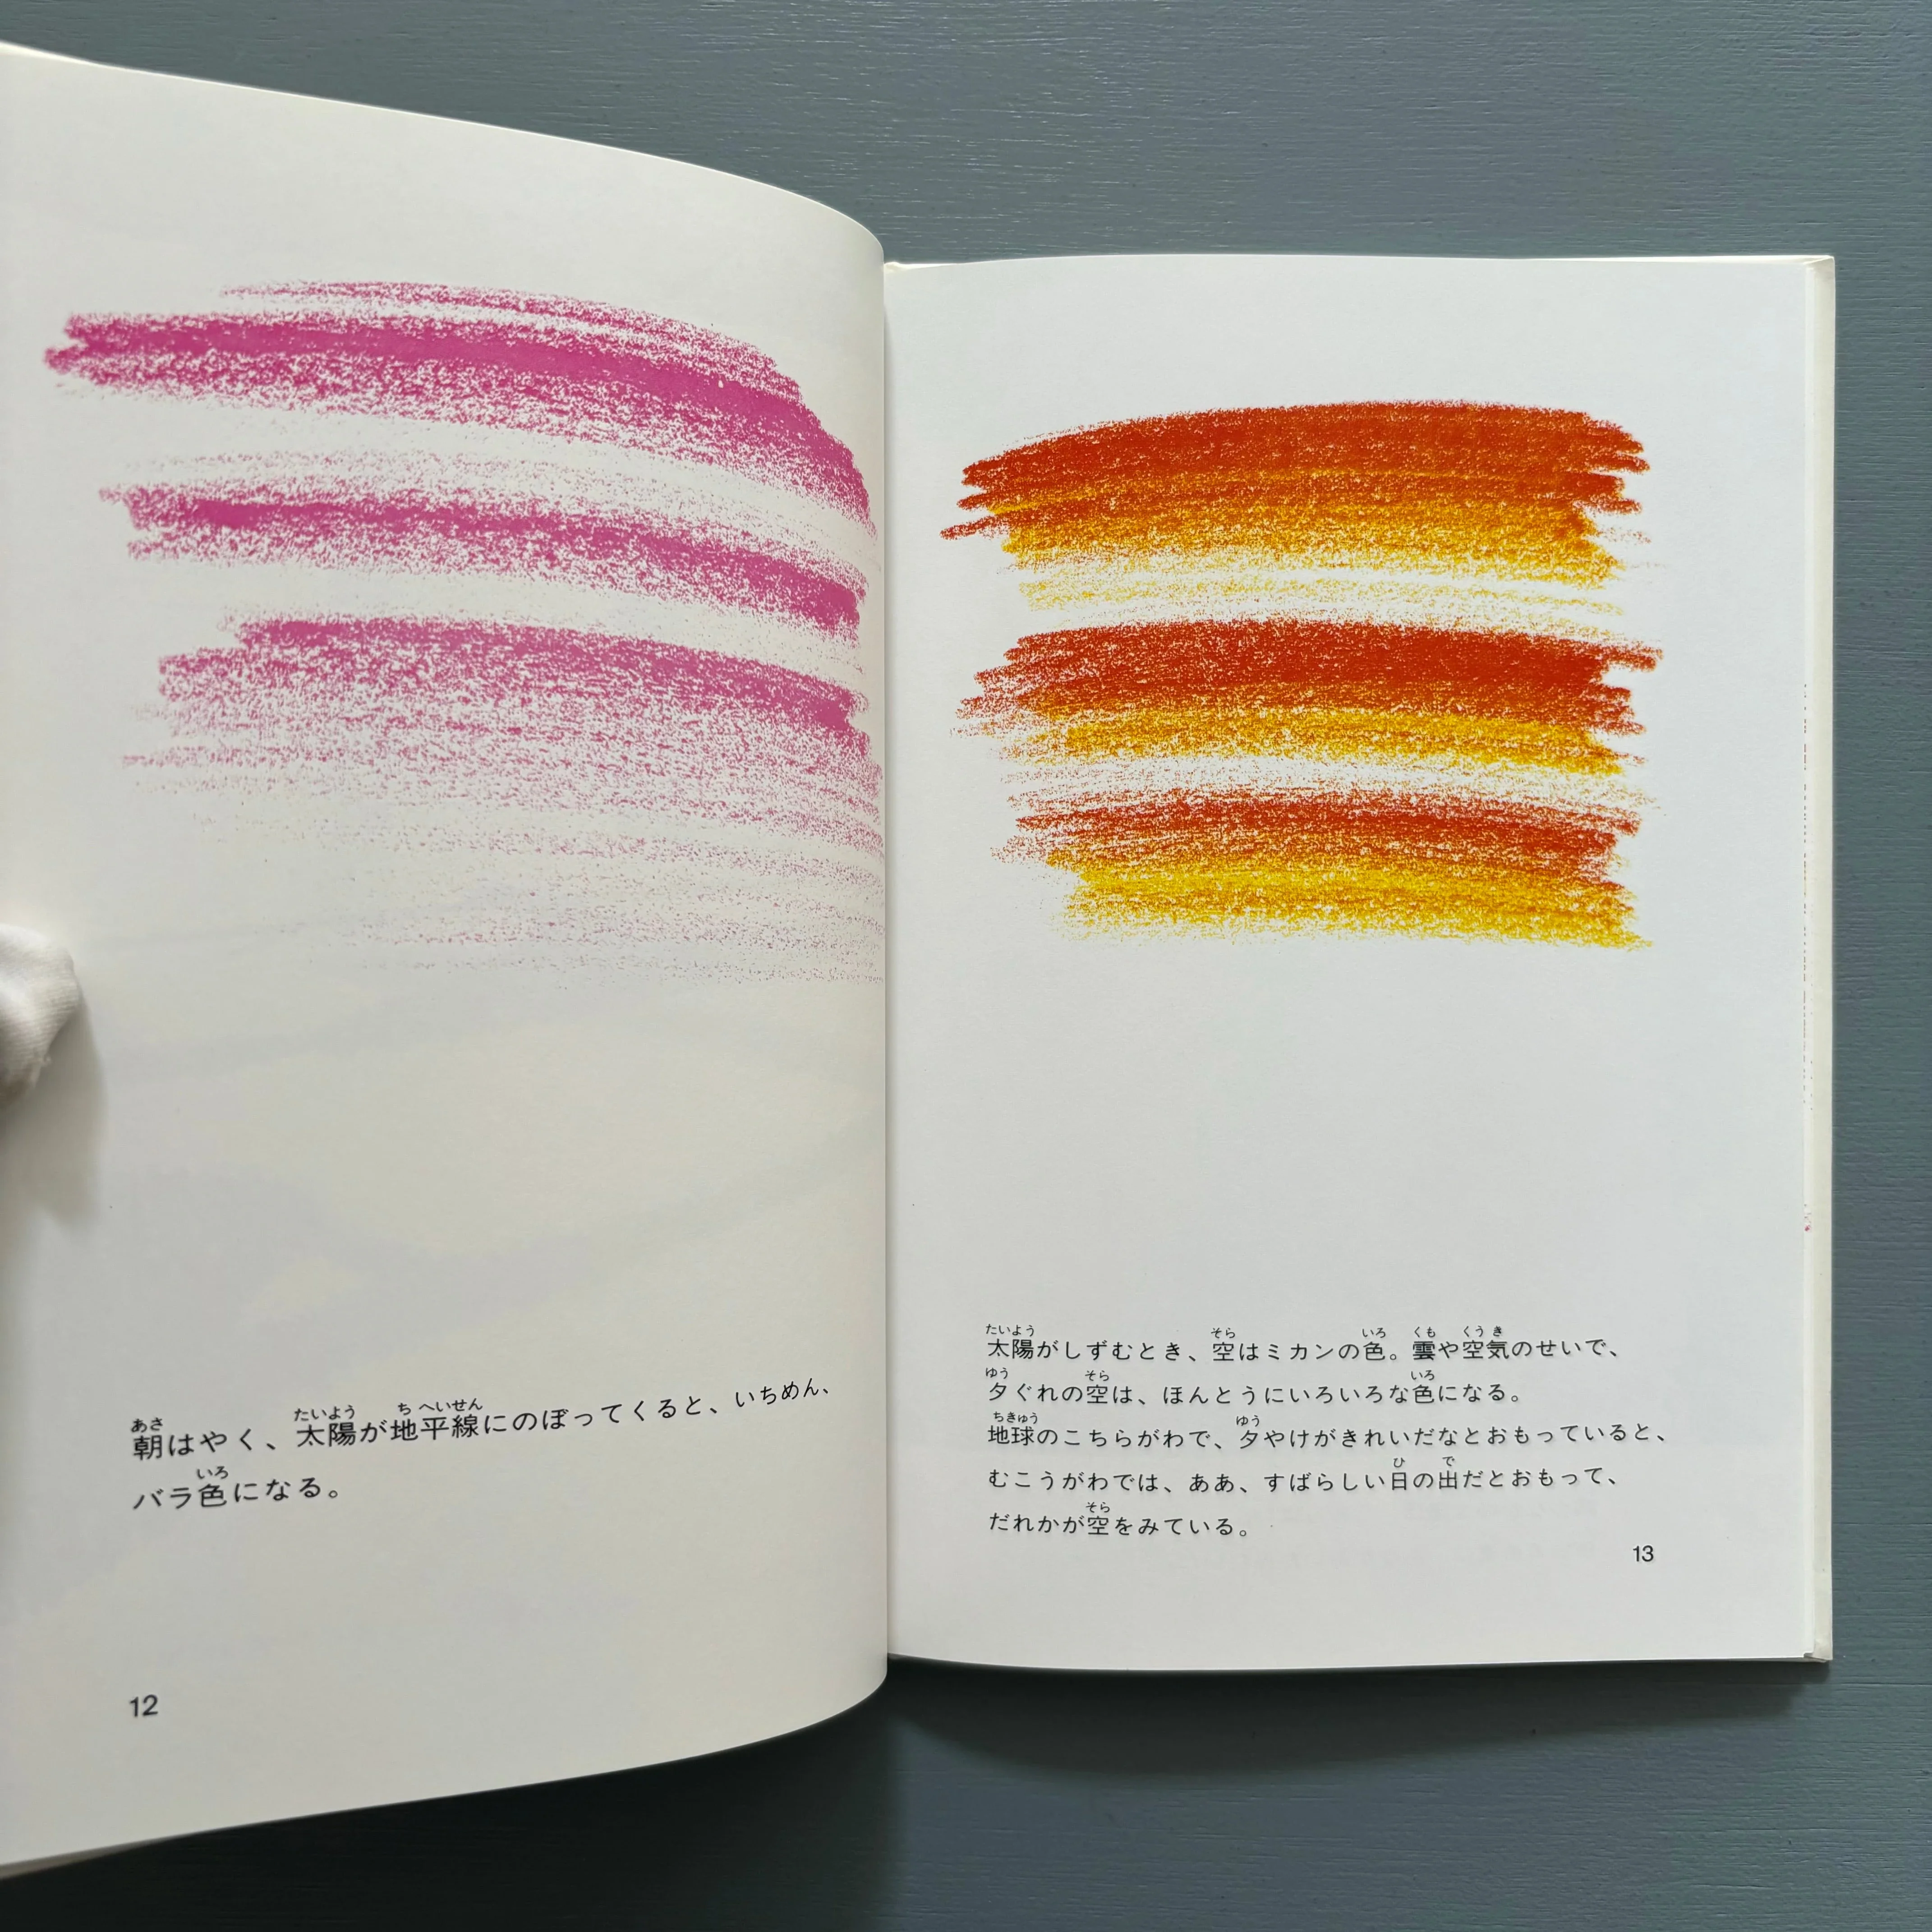 朝はやく、太陽が地平線にのぼってくると、いちめん、
バラ色になる。
12
太陽がしずむとき、空はミカンの色。雲や空気のせいで、
夕ぐれの空は、ほんとうにいろいろな色になる。
地球のこちらがわで、夕やけがきれいだなとおもっていると、
むこうがわでは、ああ、すばらしい日の出だとおもって、
だれかが空をみている。
13